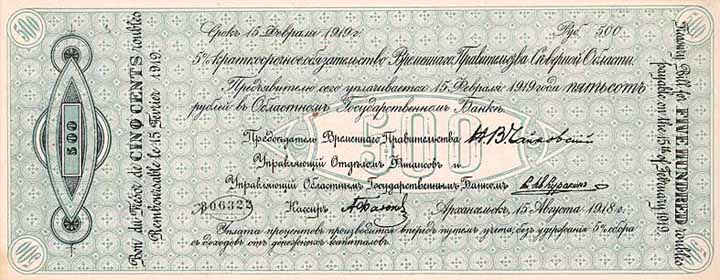 500
500
Срокъ 15 Февраля 1919 г.
Руб. 500
5% краткосрочное обязательство Временнаго Правительства Сѣверной Области.
Предъявителю сего уплачивается 15 Февраля 1919 года пятьсотъ
рублей въ Областномъ Государственномъ Банкѣ.
500
Предсѣдатель Временнаго Правительства Н.В. Чайковскій
Управляющій Отдѣломъ Финансовъ и
Управляющій Областнымъ Государственнымъ Банкомъ
№ 06322
Кассиръ
Архангельскъ, 15 Августа 1918 г.
Уплата процентовъ производится впередъ путемъ учета, безъ удержанія 5% сбора
съ доходовъ отъ денежныхъ капиталовъ.
Bon du Trésor de CINQ CENTS roubles
Remboursable le 15 Février 1919.
500
Treasury Bill for FIVE HUNDRED roubles
payable on the 15th of February 1919
500
500